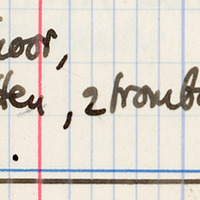 koor,
tten, 2 trombo
.